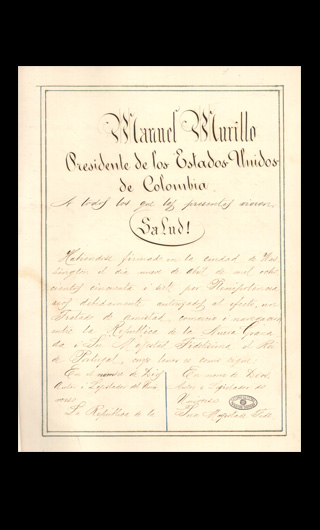 Manuel Murillo
Presidente de los Estados Unidos
de Colombia
A todos los que los presentes vieren,
Salud!
Habiendose firmado en la ciudad de Was
hington, el dia nueve de Abril de mil ocho
cientos cincuenta i siete, por Plenipotencia
rios debidamente autorizados al efecto, un
Tratado de amistad, comercio i navegacion
entre la Republica de la Nueva Grana
da i Su Majestad Fidelisima el Rei
de Portugal, cuyo tenor es como sigue:
En el nombre de Dios
Autor i Lejislador del Uni
verso
La Republica de la
Em nome de Deos
Autor e Legislador do
Universo
Sua Magestade Fide